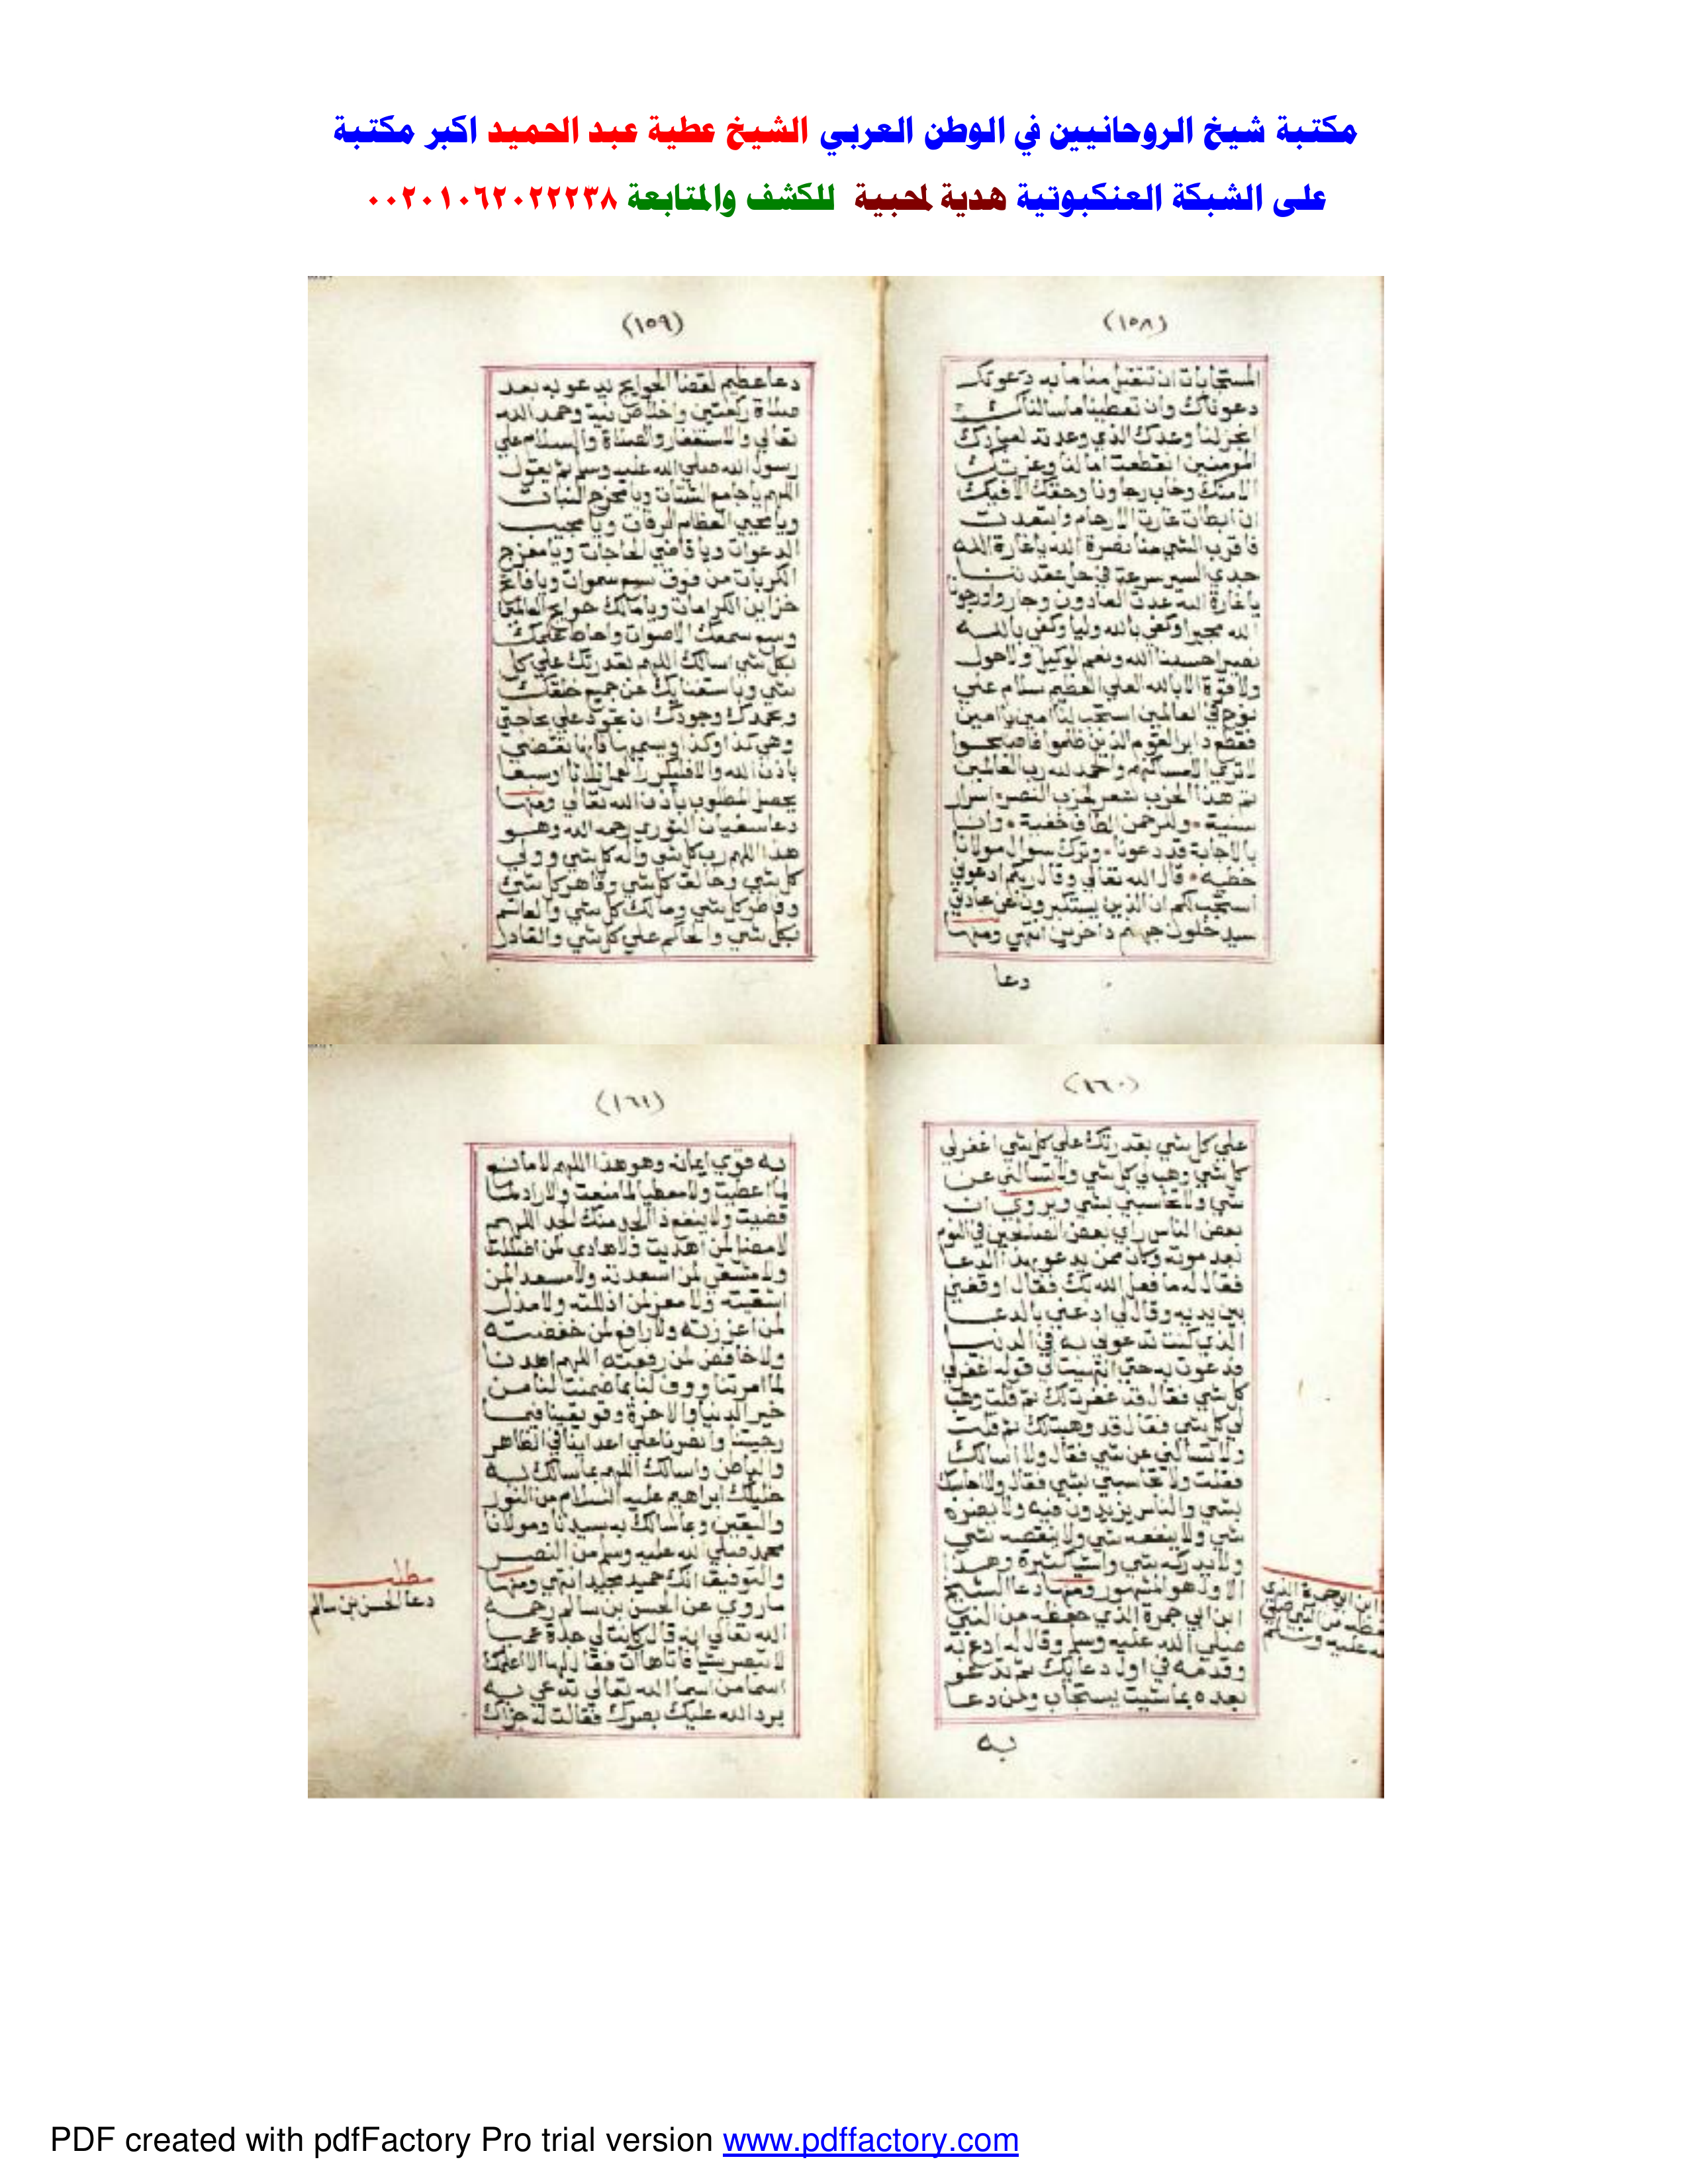 مكتبة شيخ الروحانيين في الوطن العربي الشيخ عطية عبد الحميد اكبر مكتبة
على الشبكة العنكبوتية هدية لمحبية للكشف والمتابعة ٠٠٢٠١٠٦٢٠٢٢٢٣٨
(١٥٨)
المستجابات ان تتقبل منا ما به دعوتك
دعوناك وان تعطينا ما سالناك
انجز لنا وعدك الذي وعدته لعبادك
المومنين انقطعت امالنا وعزتك
الا منك وخاب رجاونا وحقك الا فيك
ان ابطات غارة الارحام وابتعدت
فاقرب الشي منا نصرة الله يا غارة الله
جدي السير مسرعة في حل عقدتنا
يا غارة الله عدت العادون وجاروا ورجونا
الله مجيرا وكفي بالله وليا وكفي بالله
نصيرا حسبنا الله ونعم الوكيل ولا حول
ولا قوة الا بالله العلي العظيم سلام علي
نوح في العالمين استجب لنا امين يا امين
فقطع دابر القوم الذين ظلموا فاصبحوا
لا تري الا مساكنهم والحمد لله رب العالمين
تم هذا الحزب شعر لحزب النصر اسرار
سنية وللرحمن الطاف خفية وانا
بالاجابة قد دعونا وترك سوال مولانا
خطيه قال الله تعالي وقال ربكم ادعوني
استجب لكم ان الذين يستكبرون عن عبادتي
سيدخلون جهنم داخرين انتهي ومنها
دعا
(١٥٩)
دعا عظيم لقضا الحوايج يدعو به بعد
صلاة ركعتين واخلاص نية وحمد الله
تعالي والاستغفار والصلاة والسلام علي
رسول الله صلي الله عليه وسلم ثم يقول
اللهم يا جامع الشتات ويا مخرج النبات
ويا محيي العظام الرفات ويا مجيب
الدعوات ويا قاضي الحاجات ويا مفرج
الكربات من فوق سبع سموات ويا فاتح
خزاين الكرامات ويا مالك حوايج العالمين
وسع سمعك الاصوات واحاط علمك
بكل شي اسالك اللهم بقدرتك علي كل
شي وباستغنايك عن جميع خلقك
وبحمدك وجودك ان تجود علي بحاجتي
وهي كذا وكذا ويسميها فانها تقضي
باذن الله والا فليكررها ثلاثا او سبعا
يحصل المطلوب باذن الله تعالي ومنها
دعا سفيان الثوري رحمه الله وهو
هذا اللهم رب كل شي واله كل شي وولي
كل شي وخالق كل شي وقاهر كل شي
وفاطر كل شي ومالك كل شي والعالم
بكل شي والحاكم علي كل شي والقادر
(١٦٠)
علي كل شي بقدرتك علي كل شي اغفر لي
كل شي وهب لي كل شي ولا تسالني عن
شي ولا تحاسبني بشي ويروي ان
بعض الناس راي بعض الصالحين في النوم
بعد موته وكان ممن يدعو بهذا الدعا
فقال له ما فعل الله بك فقال اوقفني
بين يديه وقال لي ادعني بالدعا
الذي كنت تدعوني به في الدنيا
فدعوت به حتي انتهيت الي قوله اغفر لي
كل شي فقال قد غفرت لك ثم قلت وهب
لي كل شي فقال قد وهبتك ثم قلت
ولا تسالني عن شي فقال ولا اسالك
فقلت ولا تحاسبني بشي فقال ولا احاسبك
بشي والناس يزيدون فيه ولا يضره
شي ولا ينفعه شي ولا ينقصه شي
ولا يدركه شي كثيرة وهذا
الاول هو المشهور ومنها دعا الشيخ
ابن ابي جمرة الذي حفظه من النبي
صلي الله عليه وسلم وقال له ادع به
وقدمه في اول دعايك ثم تدعو
بعده بما شيت يستجاب ومن دعا
ابن ابي جمرة الذي
حفظه من النبي صلي
الله عليه وسلم
به
(١٦١)
به قوي ايمانه وهو هذا اللهم لا مانع
لما اعطيت ولا معطيا لما منعت ولا راد لما
قضيت ولا ينفع ذا الجد منك الجد اللهم
لا مضل لمن اهديت ولا هادي لمن اضللت
ولا مشقي لمن اسعدته ولا مسعد لمن
اشقيته ولا معز لمن اذللته ولا مذل
لمن اعززته ولا رافع لمن خفضته
ولا خافض لمن رفعته اللهم اهدنا
لما امرتنا ووف لنا بما ضمنت لنا من
خير الدنيا والاخرة وقو يقيننا فيما
رجيتنا وانصرنا علي اعداينا في الظاهر
والباطن واسالك اللهم بما سالك به
خليلك ابراهيم عليه السلام من النور
واليقين وبما سالك به سيدنا ومولانا
محمد صلي الله عليه وسلم من النصر
والتوفيق انك حميد مجيد انتهي ومنها
ما روي عن الحسن بن سالم رحمه
الله تعالي انه قال كانت لي جدة
لا تبصر شيا فاتاها ات فقال لها الا اعلمك
اسما من اسما الله تعالي تدعي به
يرد الله عليك بصرك فقالت له جزاك
مطلب
دعا الحسن بن سالم
PDF created with pdfFactory Pro trial version www.pdffactory.com